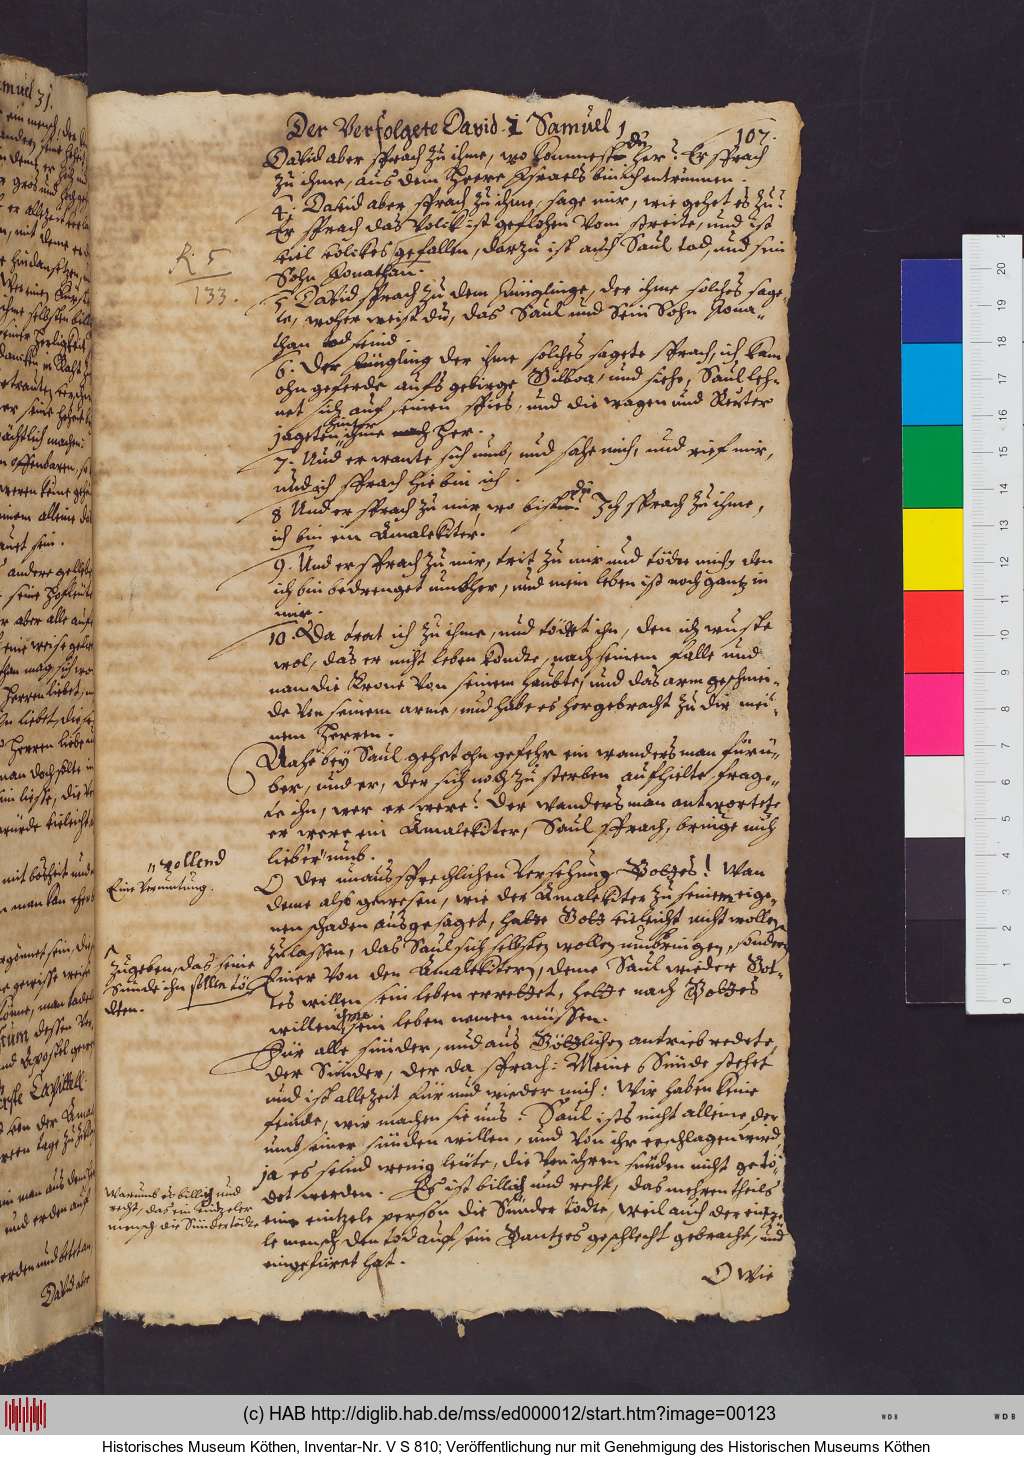 Der Verfolgete David. 1 Samuel 1
107.
David aber sprach zu ihme, wo kommestu du her? Er sprach
zu ihme, aus dem Heere Israels bin ich entrunnen.
4. David aber sprach zu ihme, sage mir, wie gehet es zu?
Er sprach das Volck ist geflohen vom streite, und ist
viel volckes gefallen, darzu ist auch Saul tod, und sein
Sohn Jonathan.
R. 5
133.
5 David sprach zu dem Jünglinge, der ihme solches sage-
te, woher weist du, das Saul und sein Sohn Jona-
than tod seind.
6. Der Jüngling der ihme solches sagete sprach, ich kam
ohn geferde aufs gebirge Gilboa, und siehe, Saul leh-
net sich auf seinen spies, und die wagen und Reuter
jageten hinter ihme nach her.
7. Und er wante sich umb, und sahe mich, und rief mir,
und ich sprach hie bin ich.
8 Und er sprach zu mir, wo bistu du? Ich sprach zu ihme,
ich bin ein Amalekiter.
9. Und er sprach zu mir, trit zu mir und tödte mich, den
ich bin bedrenget umbher, und mein leben ist noch gantz in
mir.
10 Da trat ich zu ihme, und tödtet ihn, den ich wuste
wol, das er nicht leben kondte, nach seinem falle und
nam die Krone von seinem haubte, und das arm geschmei-
de von seinem arme, und habe es hergebracht zu dir mei-
nem Herren.
Nahe bey Saul gehet ohn gefehr ein wanders man fürü-
ber, und er, der sich noch zu sterben aufhielte frage-
te ihn, wer er were? Der wanders man antwortete
er were ein Amalekiter, Saul sprach, bringe mich
lieber umb.
wollend
Eine Vermutung.
O der unaussprechlichen Versehung Gottes! Wan
deme also gewesen, wie der Amalekiter zu seinem eige-
nen schaden ausgesaget, hatte Gott vieleicht nicht wollen
zulassen, das Saul sich selbsten wollen umbringen, sondern
einer von den Amalekitern, deme Saul wieder Got-
tes willen sein leben errettet, hette nach Gottes
willen ihme sein leben nemen müssen.
zugeben, das seine
Sünde ihn sollen tö-
dten.
Für alle sünder, und aus Göttlichen antrieb redete
der Sünder, der da sprach: Meine Sünde stehet
und ist allezeit für und wieder mich: Wir haben keine
feinde, wir machen sie uns. Saul ists nicht alleine, der
umb seiner sünden willen, und von ihr erschlagen wird,
ja es seind wenig leüte, die von ihren sünden nicht getö-
det werden. Es ist billich und recht, das mehren theils
eine eintzele person die Sünder tödte, weil auch der eintze-
le mensch den tod auf sein Gantzes geschlecht gebracht, und
eingefüret hat.
Warumb es billich und
recht, das ein eintzeler
mensch die Sünder tödte
O wie
(c) HAB http://diglib.hab.de/mss/ed000012/start.htm?image=00123
Historisches Museum Köthen, Inventar-Nr. V S 810; Veröffentlichung nur mit Genehmigung des Historischen Museums Köthen